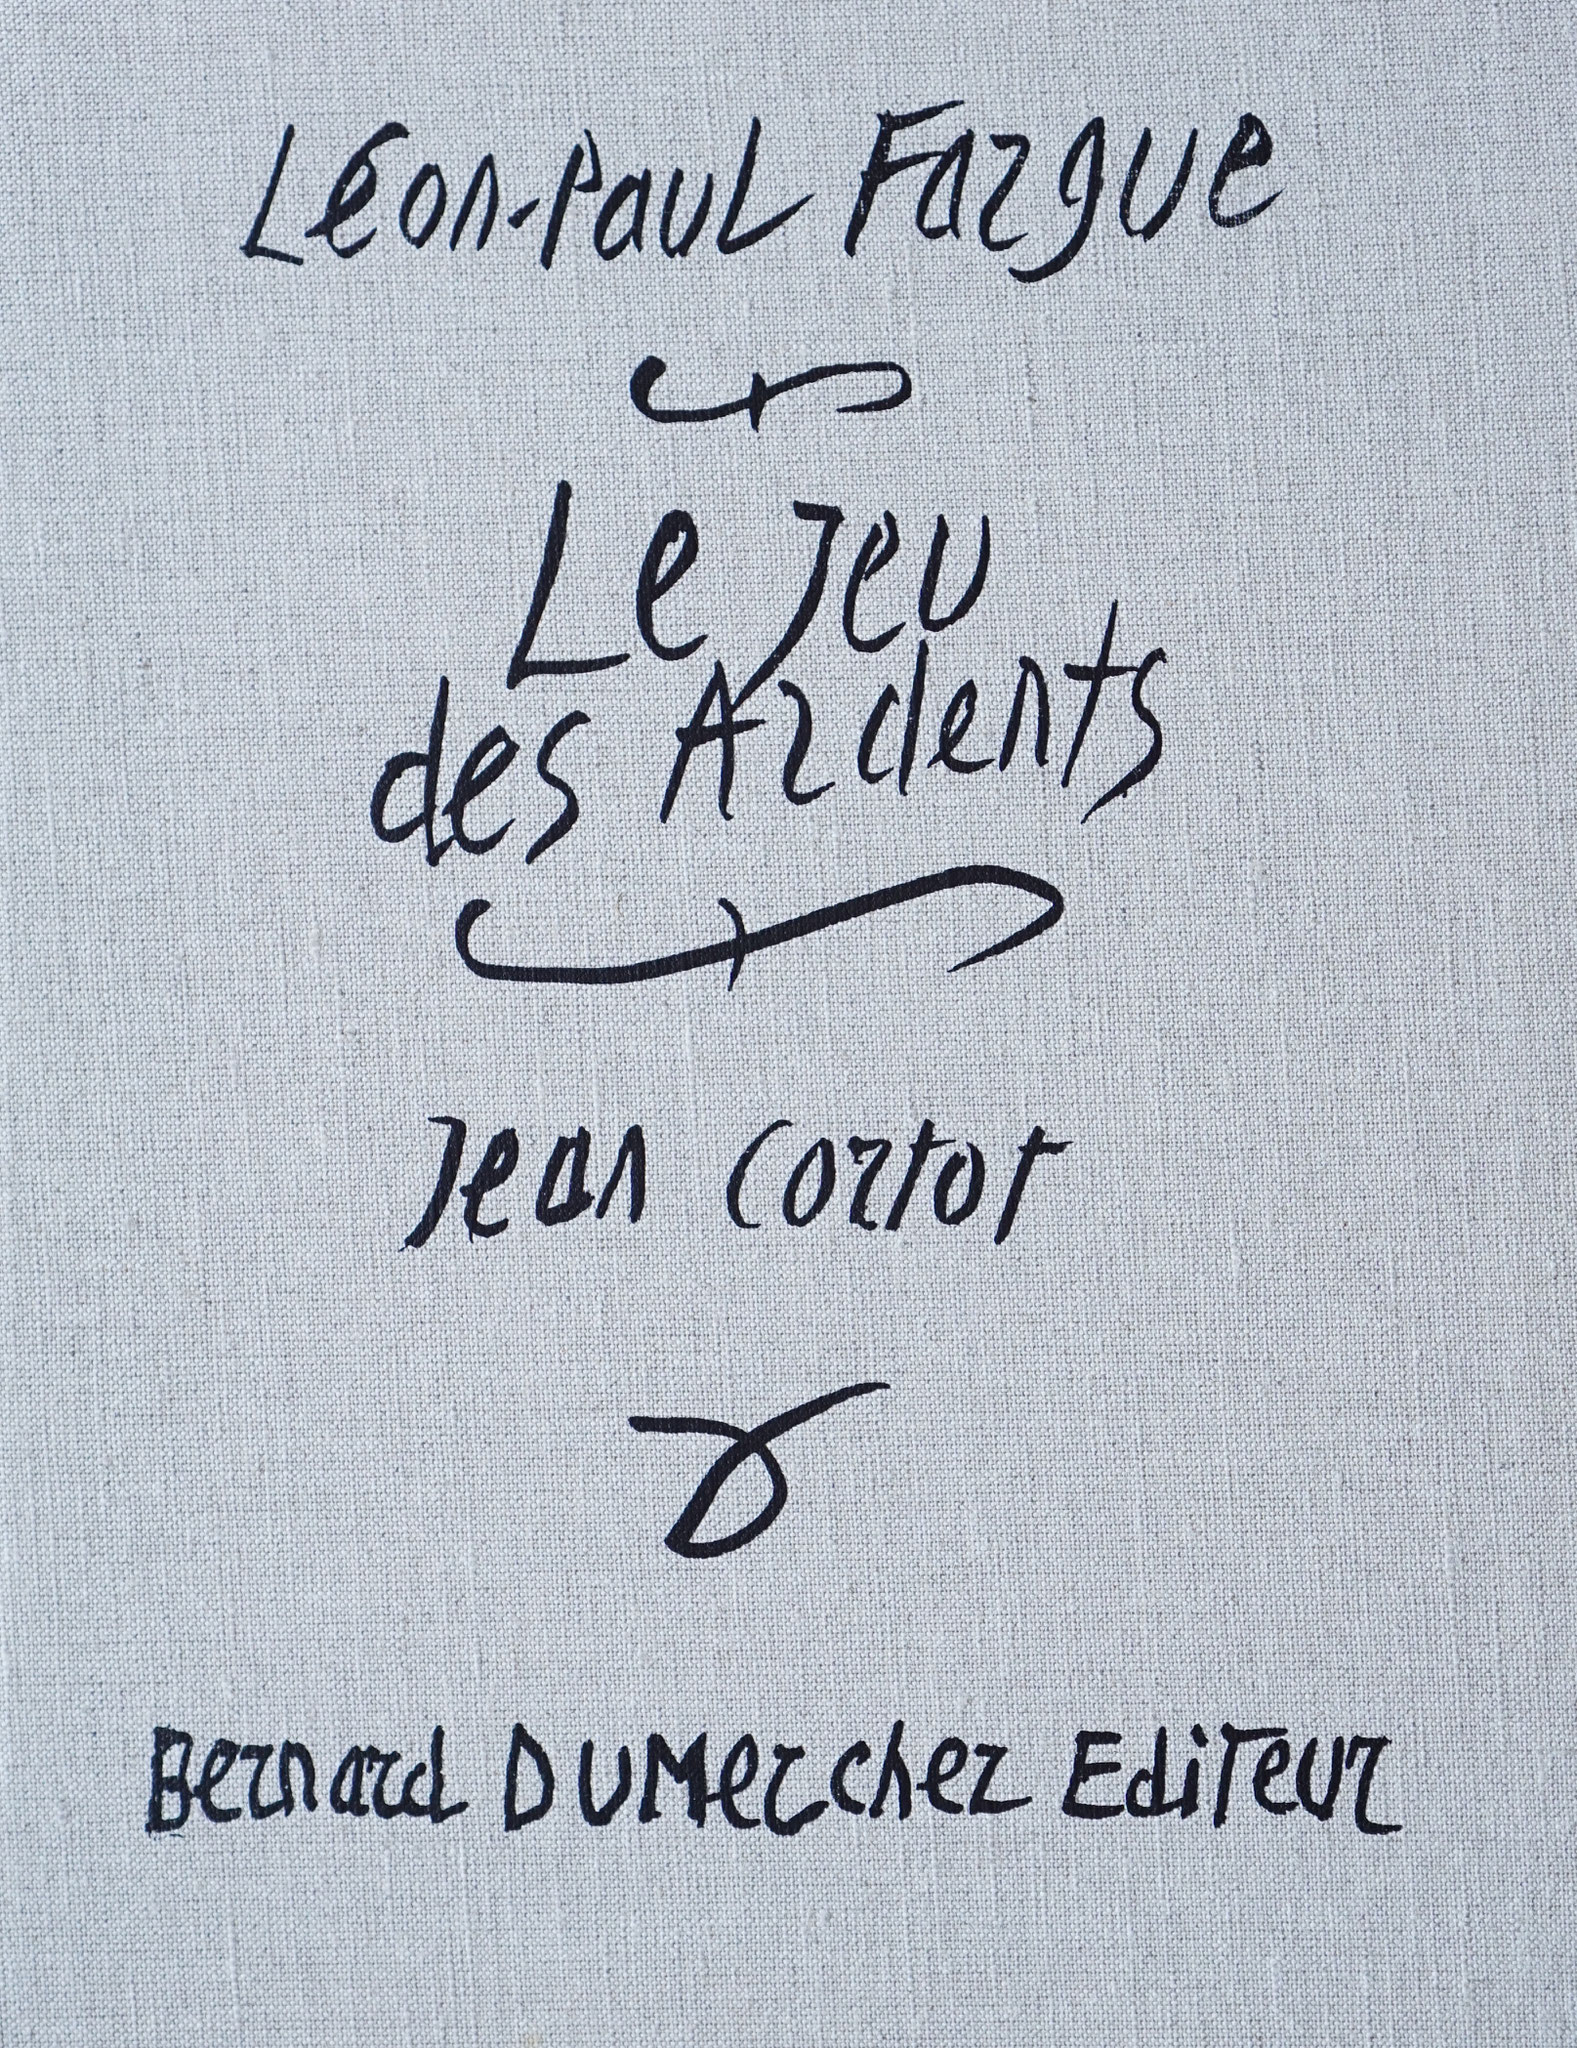 Léon-Paul Fargue
Le Jeu
des Ardents
Jean Cortot
Bernard Dumerchez Editeur